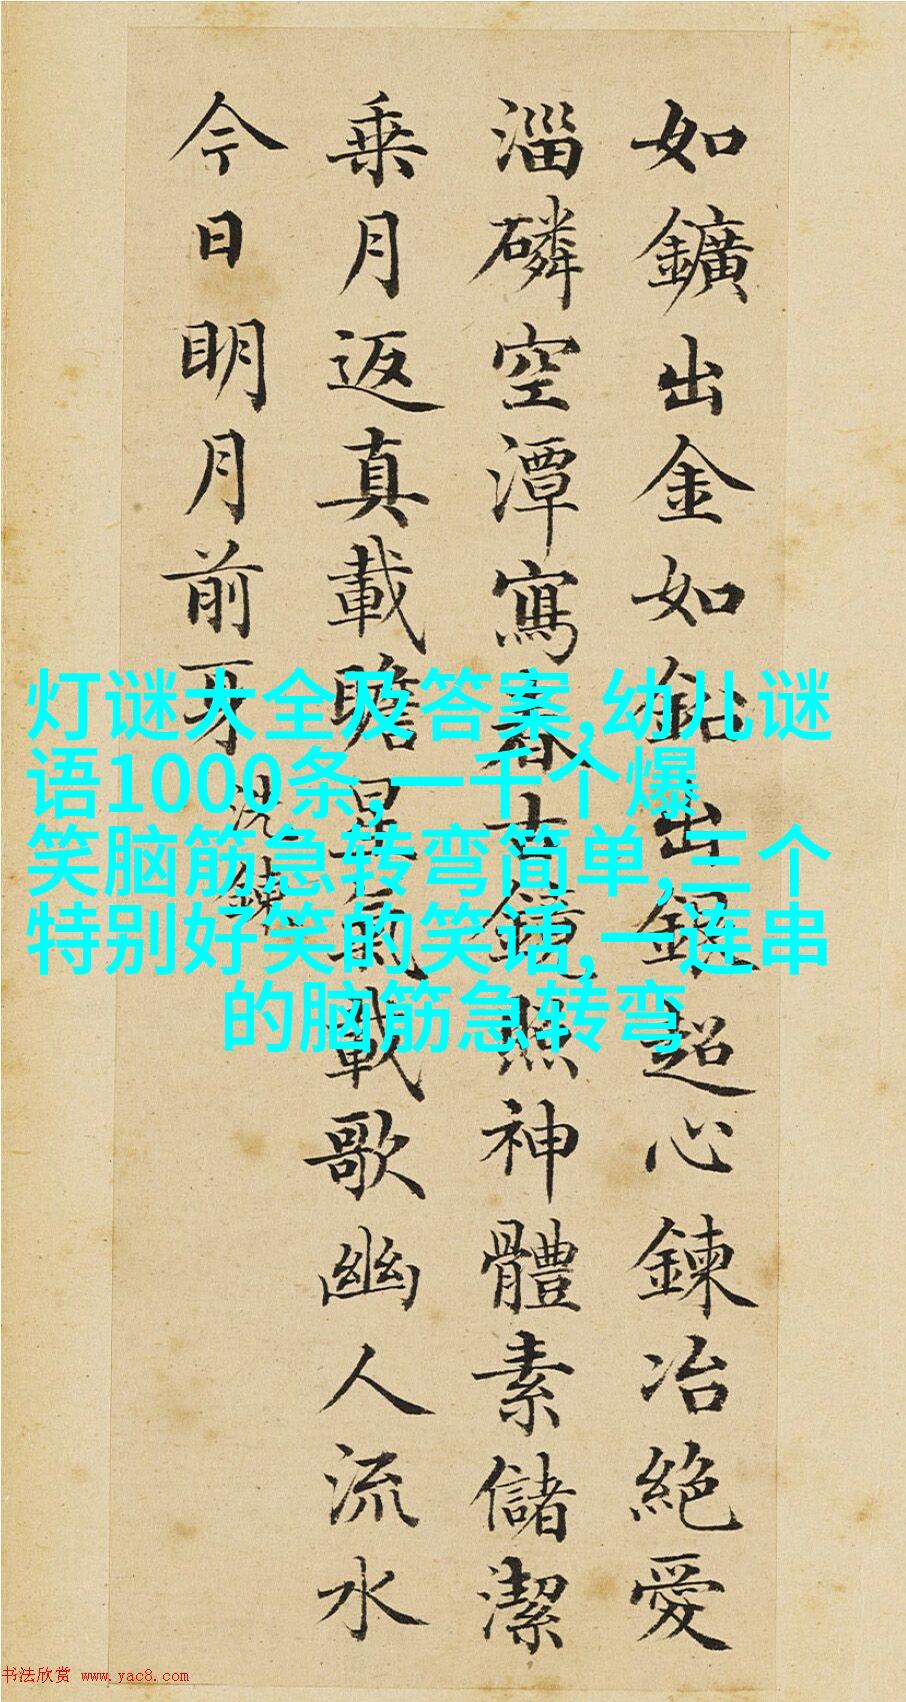 如鑛出金如鉛出銀超心鍊冶絕愛
淄磷空潭寫春古鏡照神體素儲潔
乘月返真載瞻星氣載歌幽人流水
今日明月前牙
洗鍊
灯谜大全及答案,幼儿谜
语1000条,一千个爆
笑脑筋急转弯简单,三个
特别好笑的笑话,一连串
的脑筋急转弯
书法欣赏 www.yac8.com